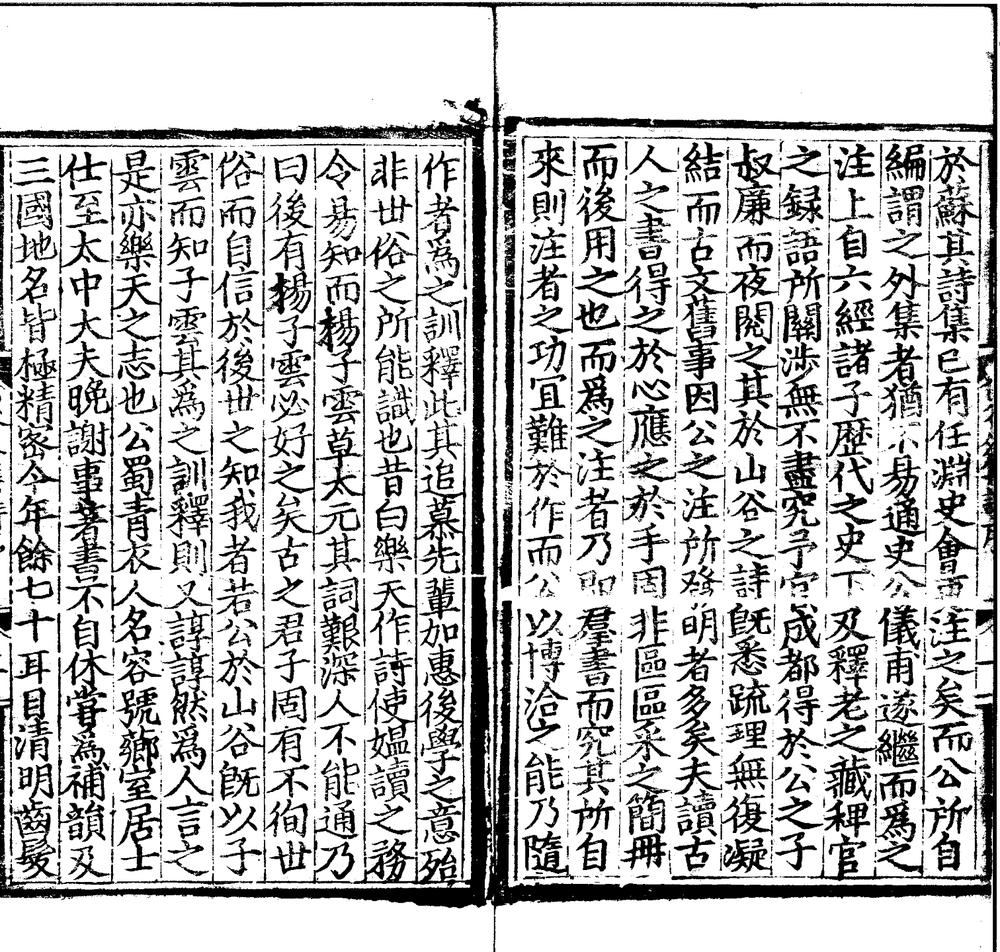 於蘇其詩集已有任淵史會更注之矣而公所自
編謂之外集者猶不易通史公儀甫遂繼而爲之
注上自六經諸子歷代之史下及釋老之藏稗官
之録語所關涉無不盡究予官成都得於公之子
叔廉而夜閱之其於山谷之詩既悉疏理無復凝
結而古文舊事因公之注所發明者多矣夫讀古
人之書得之於心應之於手固非區區采之簡冊
而後用之也而爲之注者乃即羣書而究其所自
來則注者之功冝難於作而公以博洽之能乃隨
作者爲之訓釋此其追慕先輩加惠後學之意殆
非世俗之所能識也昔白樂天作詩使媪讀之務
令易知而楊子雲草太元其詞艱深人不能通乃
曰後有楊子雲必好之矣古之君子固有不徇世
俗而自信於後世之知我者若公於山谷既以子
雲而知子雲其爲之訓釋則又諄諄然爲人言之
是亦樂天之志也公蜀青衣人名容號薌室居士
仕至太中大夫晚謝事著書不自休嘗爲補韻及
三國地名皆極精密今年餘七十耳目清明齒髮